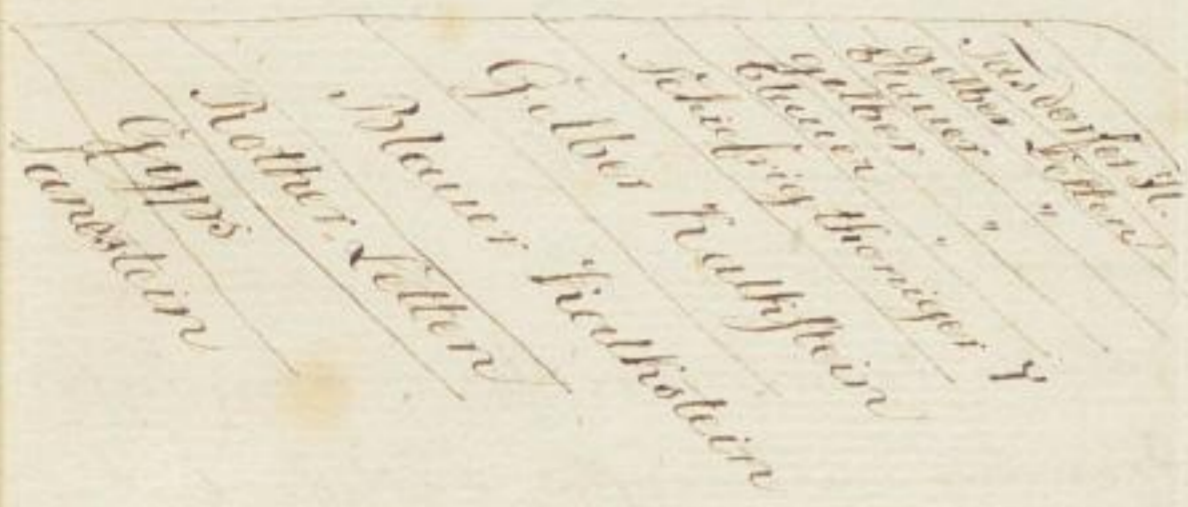 Sandstein
Gyps
Rother Letten
Blauer Kalkstein
Gelber Kalkstein
Schiefrig thoniger
Blauer "
Gelber "
Blauer "
Gelber Letten
Tasdorfer